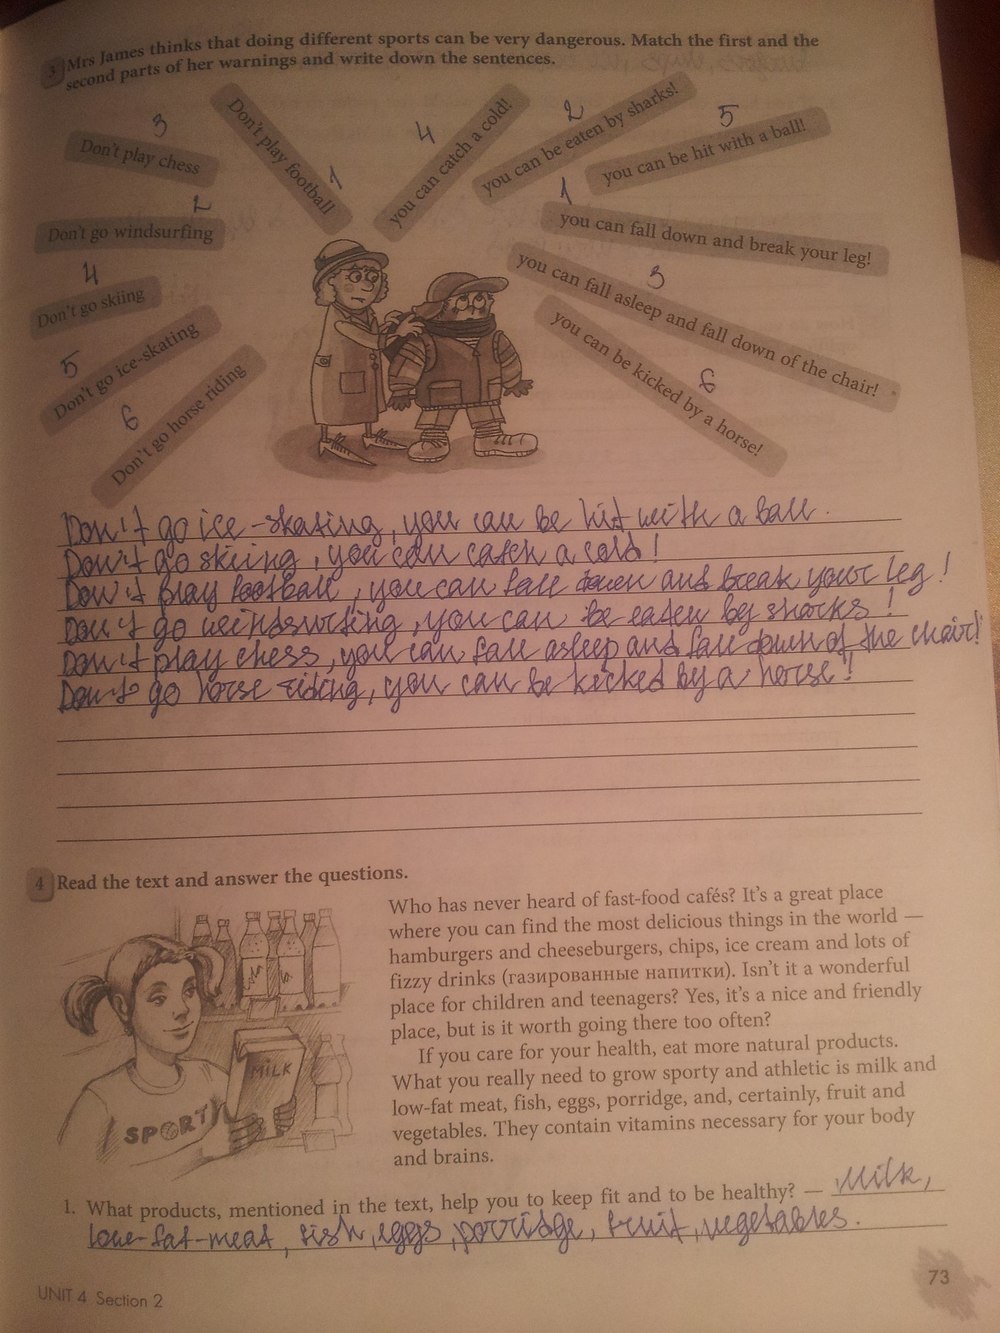 3 Mrs James thinks that doing different sports can be very dangerous. Match the first and the
second parts of her warnings and write down the sentences.
3
Don't play chess
Don't play football
1
4
you can catch a cold!
2
you can be eaten by sharks!
5
you can be hit with a ball!
2
Don't go windsurfing
1
you can fall down and break your leg!
4
Don't go skiing
3
you can fall asleep and fall down of the chair!
5
Don't go ice-skating
6
you can be kicked by a horse!
6
Don't go horse riding
Don't go ice-skating, you can be hit with a ball.
Don't go skiing, you can catch a cold!
Don't play football, you can fall down and break your leg!
Don't go windsurfing, you can be eaten by sharks!
Don't play chess, you can fall asleep and fall down of the chair!
Don't go horse riding, you can be kicked by a horse!
4 Read the text and answer the questions.
Who has never heard of fast-food cafés? It's a great place
where you can find the most delicious things in the world —
hamburgers and cheeseburgers, chips, ice cream and lots of
fizzy drinks (газированные напитки). Isn't it a wonderful
place for children and teenagers? Yes, it's a nice and friendly
place, but is it worth going there too often?
If you care for your health, eat more natural products.
What you really need to grow sporty and athletic is milk and
low-fat meat, fish, eggs, porridge, and, certainly, fruit and
vegetables. They contain vitamins necessary for your body
and brains.
MILK
SPORT
1. What products, mentioned in the text, help you to keep fit and to be healthy? — Milk,
low-fat-meat, fish, eggs, porridge, fruit, vegetables.
UNIT 4 Section 2
73